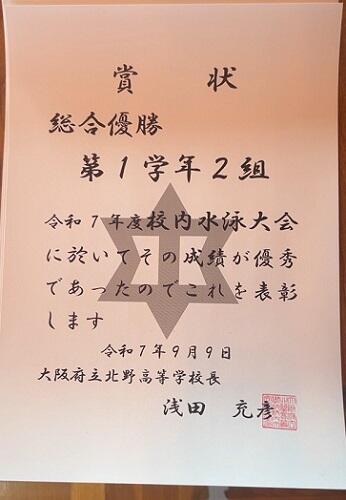 賞 状
総合優勝
第1学年2組
令和7年度校内水泳大会
に於いてその成績が優秀
であったのでこれを表彰
します
令和7年9月9日
大阪府立北野高等学校長
浅田 充彦